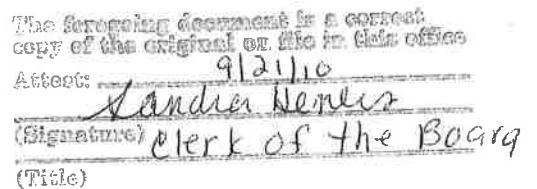 The foregoing document is a correct
copy of the original on file in this office
Attest: 9/21/10
Sandra
(Signature) Clerk of the Board
(Title)